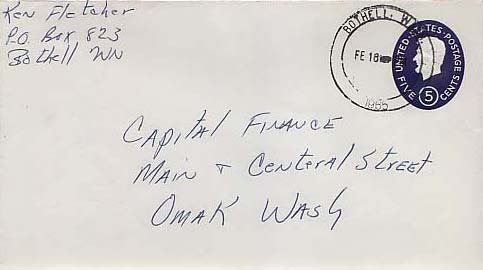 Ken Fletcher
P.O. Box 823
Bothell WN
BOTHELL, W
FE 18
1965
UNITED STATES POSTAGE
FIVE 5 CENTS
Capital Finance
Main + Central Street
Omak Wash